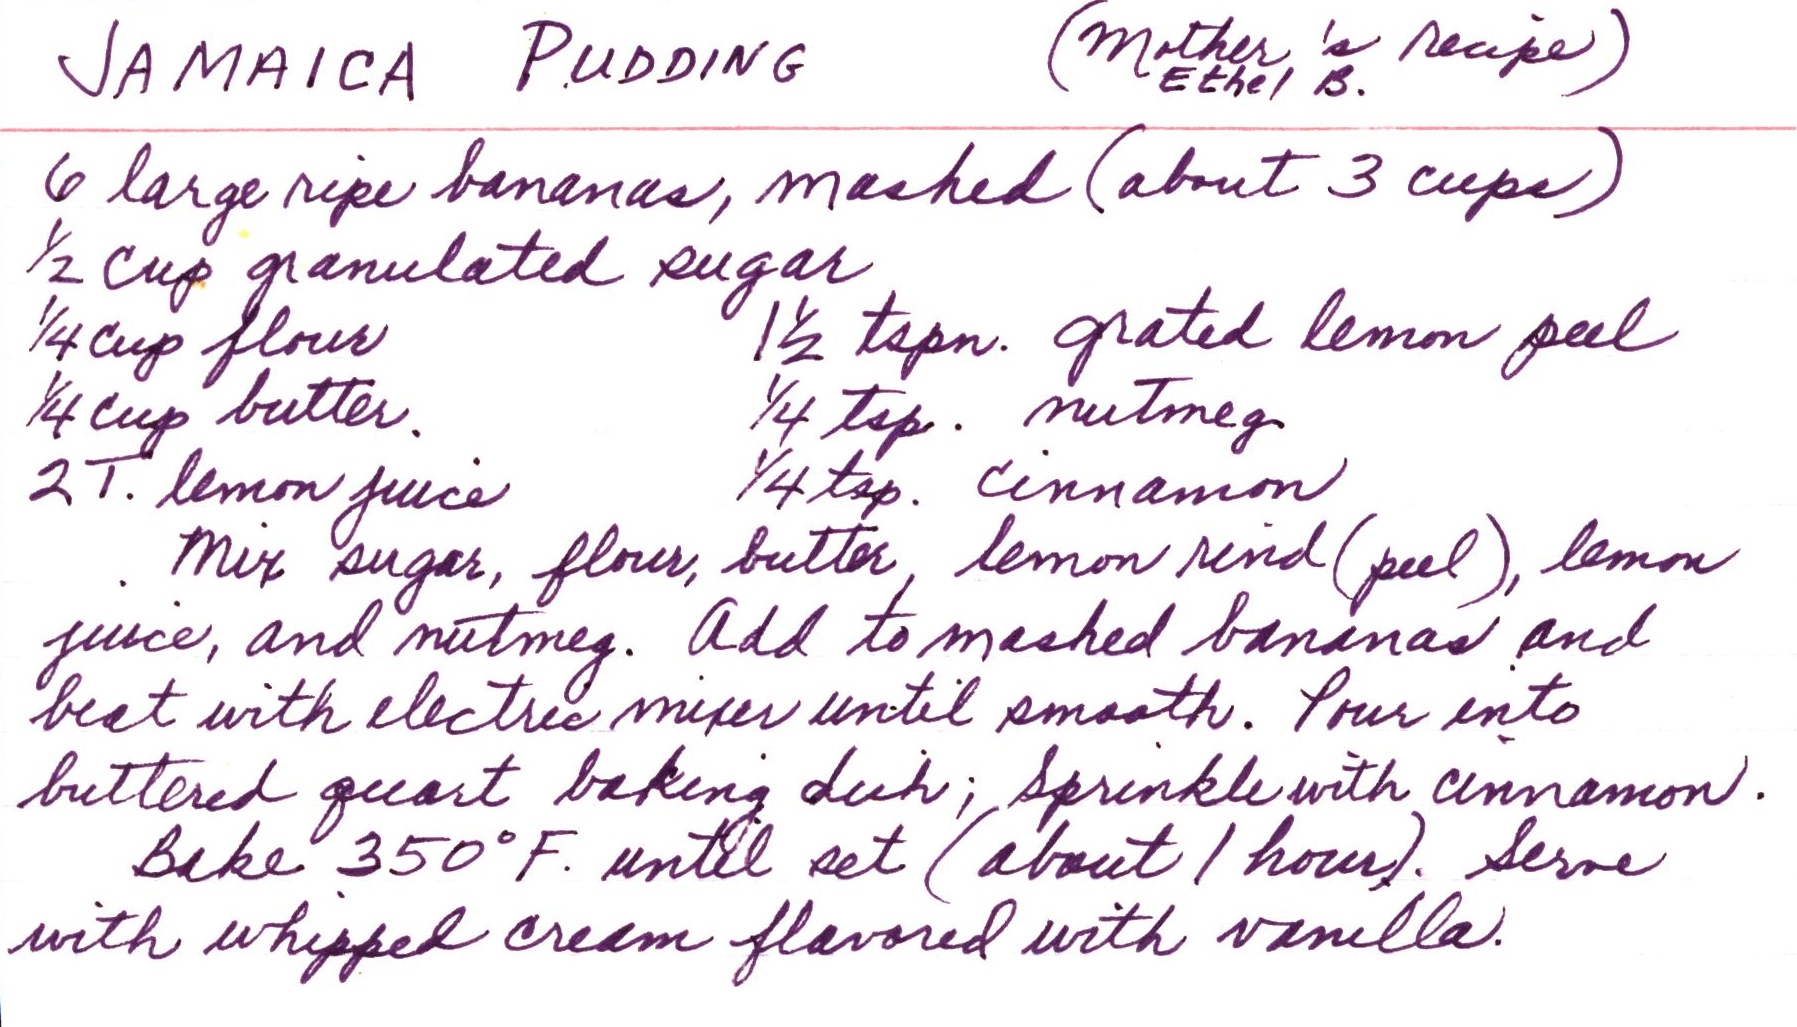 JAMAICA PUDDING (Mother's recipe)
Ethel B.
6 large ripe bananas, mashed (about 3 cups)
1/2 cup granulated sugar
1/4 cup flour 1 1/2 tspn. grated lemon peel
1/4 cup butter. 1/4 tsp. nutmeg
2 T. lemon juice 1/4 tsp. cinnamon
Mix sugar, flour, butter, lemon rind (peel), lemon
juice, and nutmeg. Add to mashed bananas and
beat with electric mixer until smooth. Pour into
buttered quart baking dish; Sprinkle with cinnamon.
Bake 350° F. until set (about 1 hour). Serve
with whipped cream flavored with vanilla.